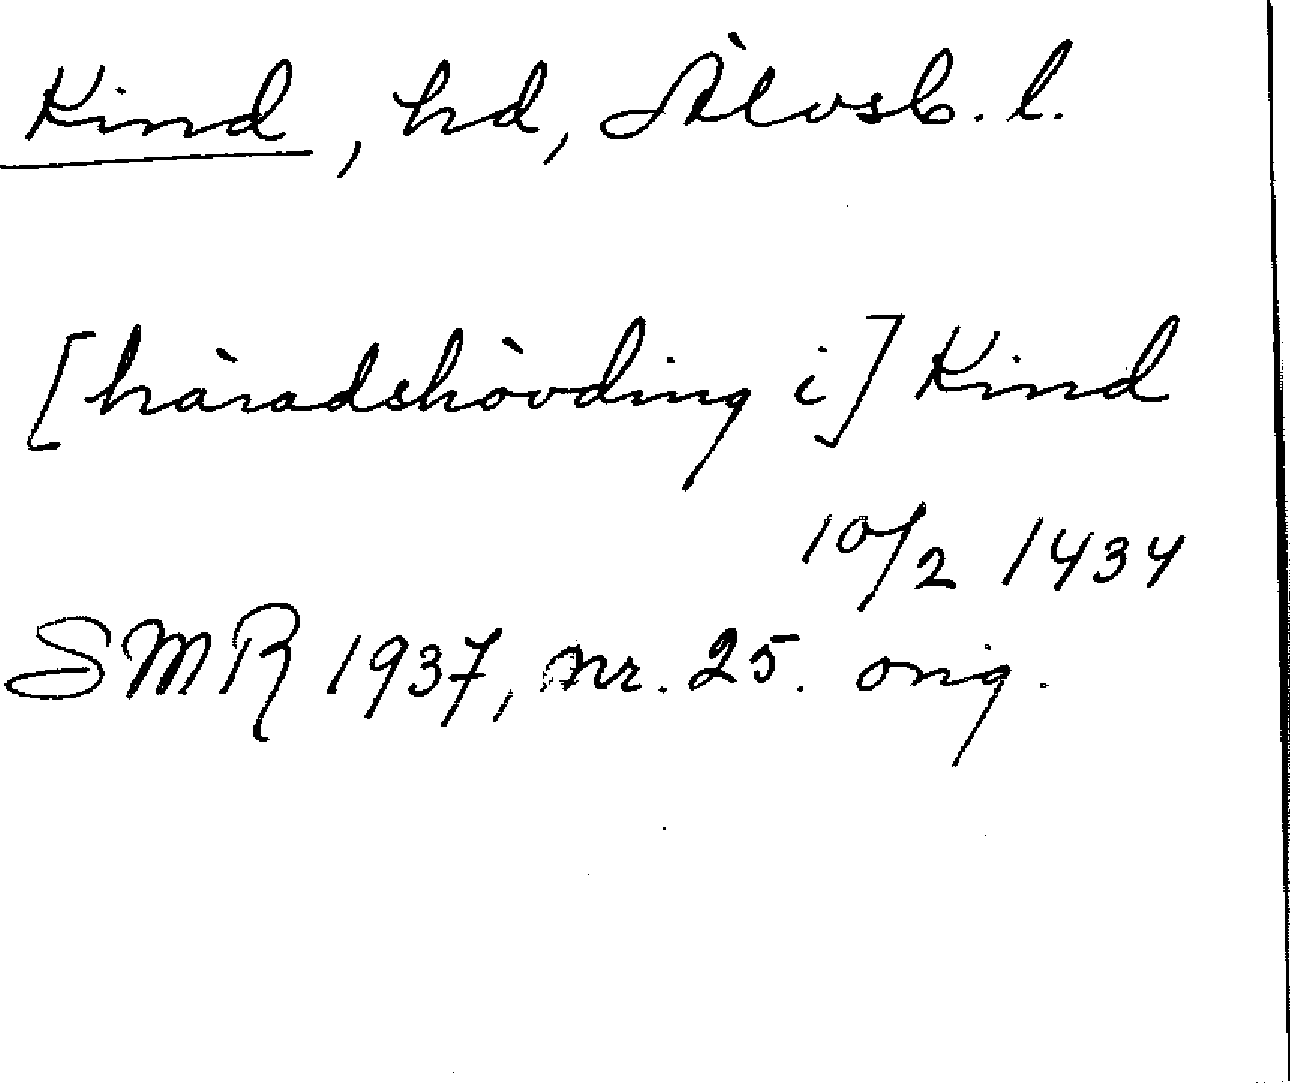 Kind, hd, Älvsb. l.
[häradshövding i] Kind
10/2 1434
SMR 1937, nr. 25. orig.